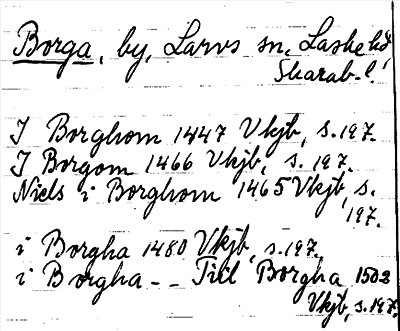 Borga, by, Larvs sn, Laske hd
Skarab. l.
I Borghom 1447 Vkjb, s. 197.
I Borgom 1466 Vkjb, s. 197.
Niels i Borghom 1465 Vkjb, s.
197.
i Borgha 1480 Vkjb, s. 197.
i Borgha -- Till Borgha 1502
Vkjb, s. 197.